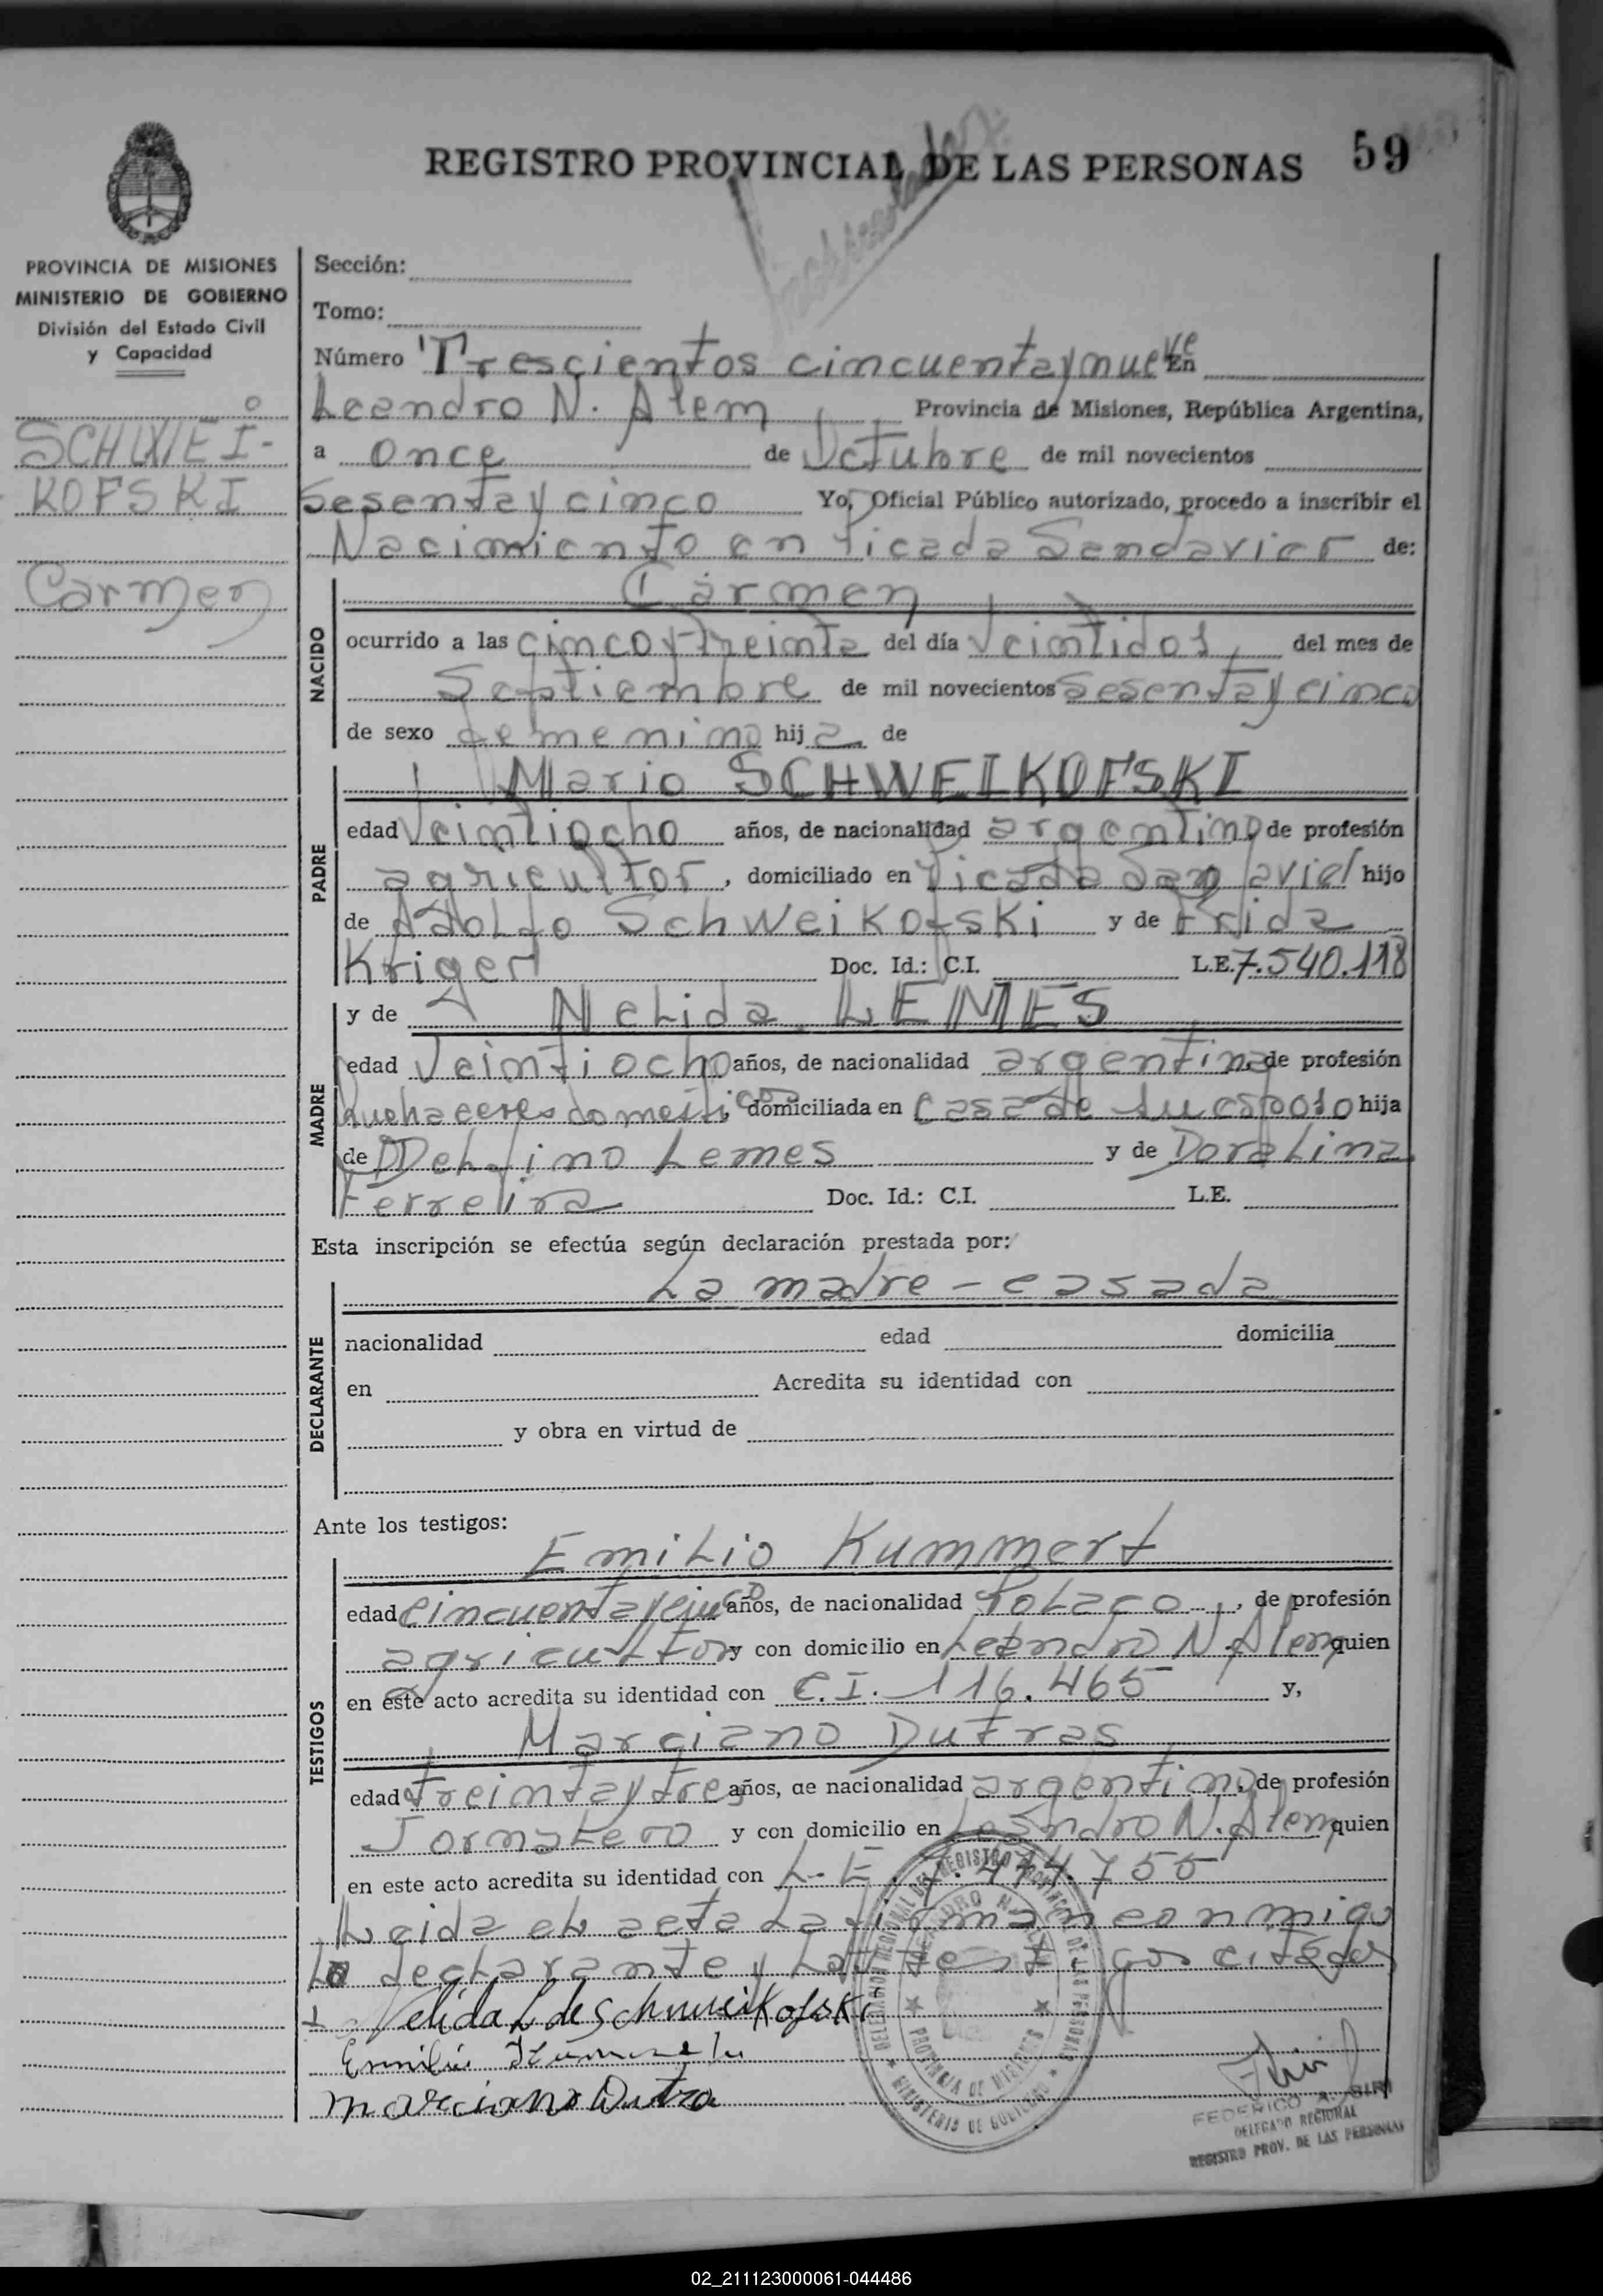 REGISTRO PROVINCIAL DE LAS PERSONAS 59
PROVINCIA DE MISIONES
MINISTERIO DE GOBIERNO
División del Estado Civil
y Capacidad
SCHWEI-
KOFSKI
Carmen
Sección:
Tomo:
Número Trescientos cincuentaynueve En
Leandro N. Alem Provincia de Misiones, República Argentina,
a once de Octubre de mil novecientos
Sesentaycinco Yo, Oficial Público autorizado, procedo a inscribir el
Nacimiento en Picada Sandavier de:
NACIDO
Carmen
ocurrido a las cincoytreinta del día veintidos del mes de
Septiembre de mil novecientos sesentaycinco
de sexo femenino hija de
PADRE
Mario SCHWEIKOFSKI
edad Veintiocho años, de nacionalidad argentino de profesión
agricultor, domiciliado en Picada San Javiel hijo
de Adolfo Schweikofski y de Frida
Kriger Doc. Id.: C.I. L.E. 7.540.118
MADRE
y de Nelida LEMES
edad Veintiocho años, de nacionalidad argentina, de profesión
Quehaceres domesticos domiciliada en Casa de su esposo hija
de Delfino Lemes y de Doralina
Ferreira Doc. Id.: C.I. L.E.
Esta inscripción se efectúa según declaración prestada por:
DECLARANTE
La madre - casada
nacionalidad edad domicilia
en Acredita su identidad con
y obra en virtud de
Ante los testigos:
TESTIGOS
Emilio Kummert
edad cincuentaycinco años, de nacionalidad Polaco, de profesión
agricultor y con domicilio en Leandro N. Alem quien
en este acto acredita su identidad con C.I. 116.465 y,
Marciano Dutras
edad treintaytres años, de nacionalidad argentino, de profesión
Jornalero y con domicilio en Leandro N. Alem quien
en este acto acredita su identidad con L.E. 7.474.755
Leida el acta la firman conmigo
La declarante y los testigos citados
Nelida L de Schweikofski
Emilio
marciano Dutra
DELEGACION REGIONAL DEL REGISTRO PROVINCIAL DE LAS PERSONAS
LEANDRO N. ALEM
PROVINCIA DE MISIONES
MINISTERIO DE GOBIERNO
FEDERICO A.
DELEGADO REGIONAL
REGISTRO PROV. DE LAS PERSONAS
02_211123000061-044486